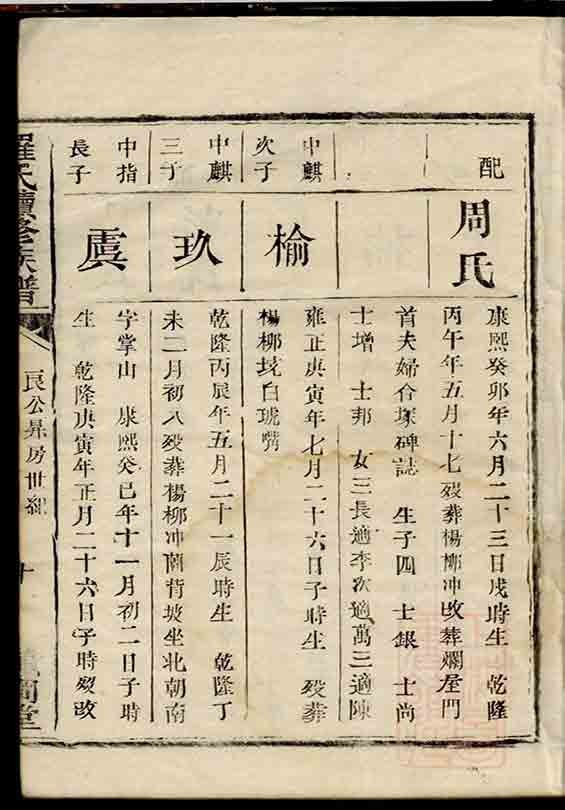 配
周氏
康熙癸卯年六月二十三日戌時生　乾隆
丙午年五月十七歿葬楊柳冲改葬爛屋門
首夫婦合塚碑誌　生子四　士銀　士尚
士增　士邦　女三長適李次適萬三適陳
中麒
次子
榆
雍正庚寅年七月二十六日子時生　歿葬
楊柳坡白琥嘴
中麒
三子
玖
乾隆丙辰年五月二十一辰時生　乾隆丁
未二月初八歿葬楊柳冲南背坡坐北朝南
中指
長子
虞
字掌山　康熙癸巳年十一月初二日子時
生　乾隆庚寅年正月二十六日子時歿改
羅氏續修族譜
艮公昇房世紀
十